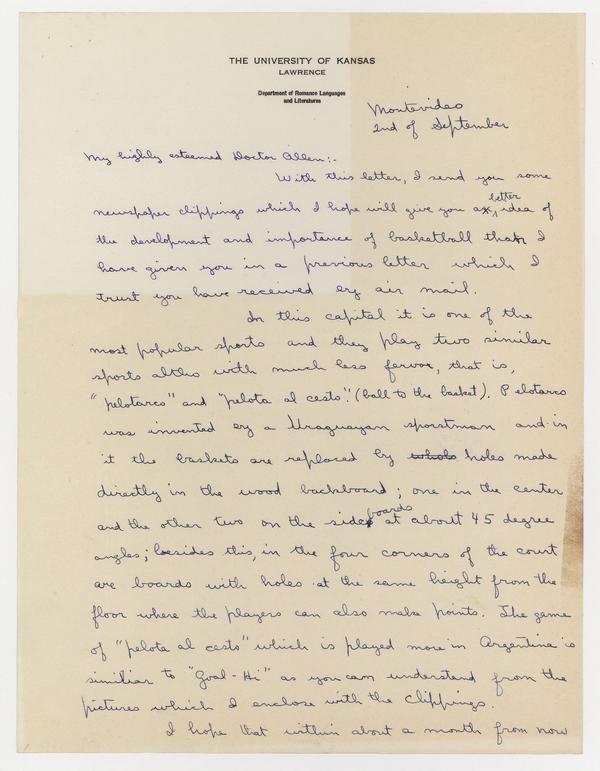 THE UNIVERSITY OF KANSAS
LAWRENCE
Department of Romance Languages
and Literatures
Montevideo
2nd of September
My highly esteemed Doctor Allen:-
With this letter, I send you some
newspaper clippings which I hope will give you a better idea of
the development and importance of basketball than I
have given you in a previous letter which I
trust you have received by air mail.
In this capital it is one of the
most popular sports and they play two similar
sports altho with much less fervor, that is,
"pelotaros" and "pelota al cesto". (ball to the basket). Pelotaros
was invented by a Uraguayan sportsman and in
it the baskets are replaced by whole holes made
directly in the wood backboard; one in the center
and the other two on the side boards at about 45 degree
angles; besides this, in the four corners of the court
are boards with holes at the same height from the
floor where the players can also make points. The game
of "pelota al cesto" which is played more in Argentina is
similiar to "Goal-Hi" as you can understand from the
pictures which I enclose with the clippings.
I hope that within about a month from now